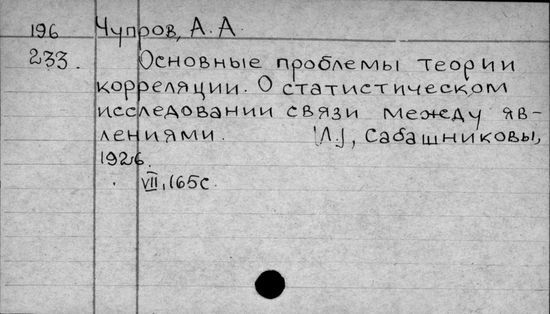 196 Чупров, А. А.
233. Основные проблемы теории
корреляции. О статистическом
исследовании связи между яв-
лениями. М., Сабашниковы,
1926.
VII, 165с.